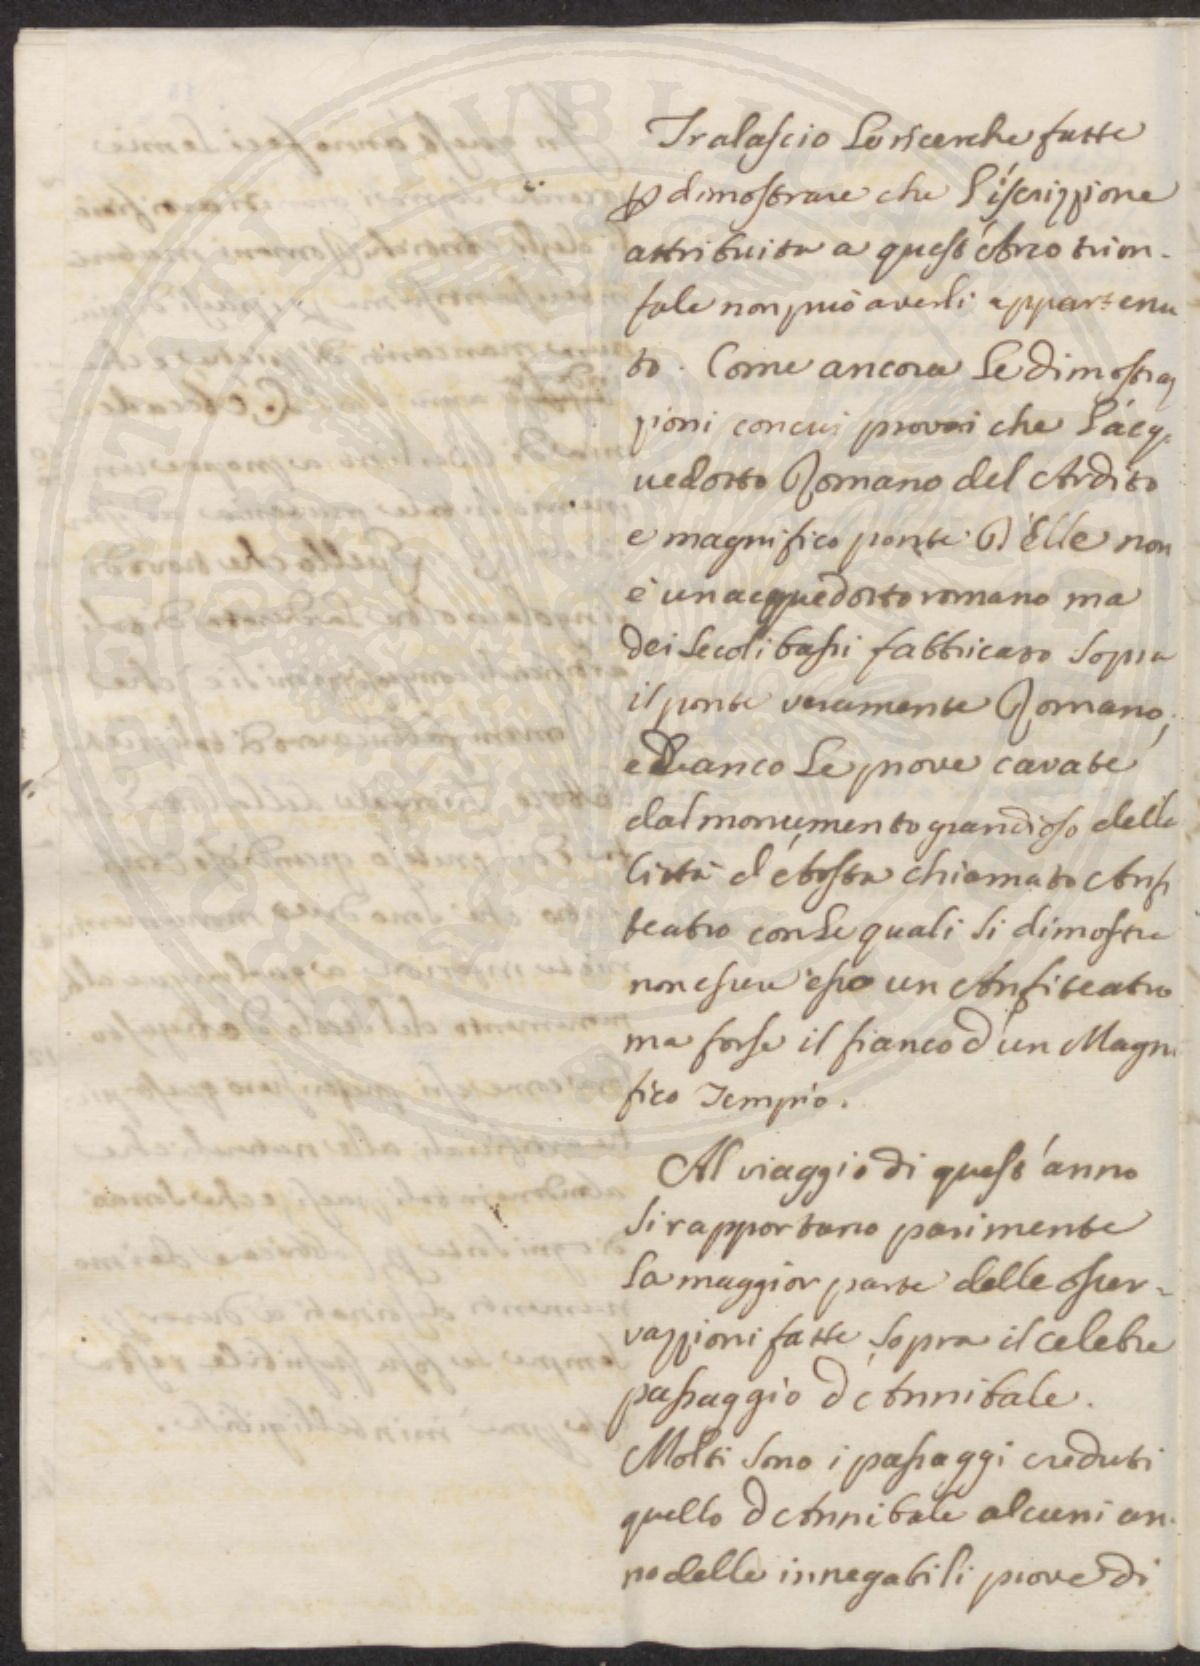 Tralascio le ricerche fatte
p dimostrare che l'iscrizzione
attribuita a quest'Arco trion-
fale non può averli appartenu
to. Come ancora le dimostra
zioni con cui provai che l'acq
uedotto Romano del Ardito
e magnifico ponte d'Elle non
è un acquedotto romano ma
dei secoli bassi fabbricato sopra
il ponte veramente Romano,
ed anco le prove cavate
dal monumento grandioso della
Città d'Aosta chiamato Anfi
teatro con le quali si dimostra
non essere esso un Anfiteatro
ma forse il fianco d'un Magni
fico Tempio.
Al viaggio di quest'anno
si rapportano parimente
la maggior parte delle osser-
vazzioni fatte sopra il celebre
passaggio d'Annibale.
Molti sono i passaggi creduti
quello d'Annibale alcuni an-
no delle innegabili prove di